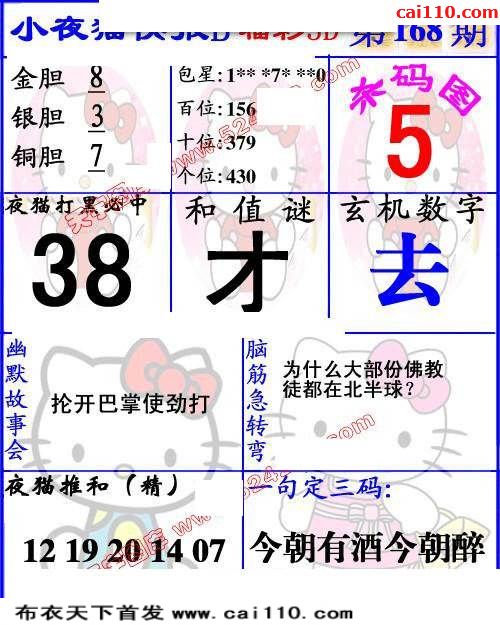 cai110.com
小夜猫快报D 福彩3D 第 168 期
金胆 8
银胆 3
铜胆 7
包星:1** *7* **0
百位:156
十位:379
个位:430
来码图
5
夜猫打黑必中
38
和值谜
才
玄机数字
去
幽默故事会
抡开巴掌使劲打
脑筋急转弯
为什么大部份佛教
徒都在北半球?
夜猫推和(精)
12 19 20 14 07
一句定三码:
今朝有酒今朝醉
布衣天下首发 www.cai110.com